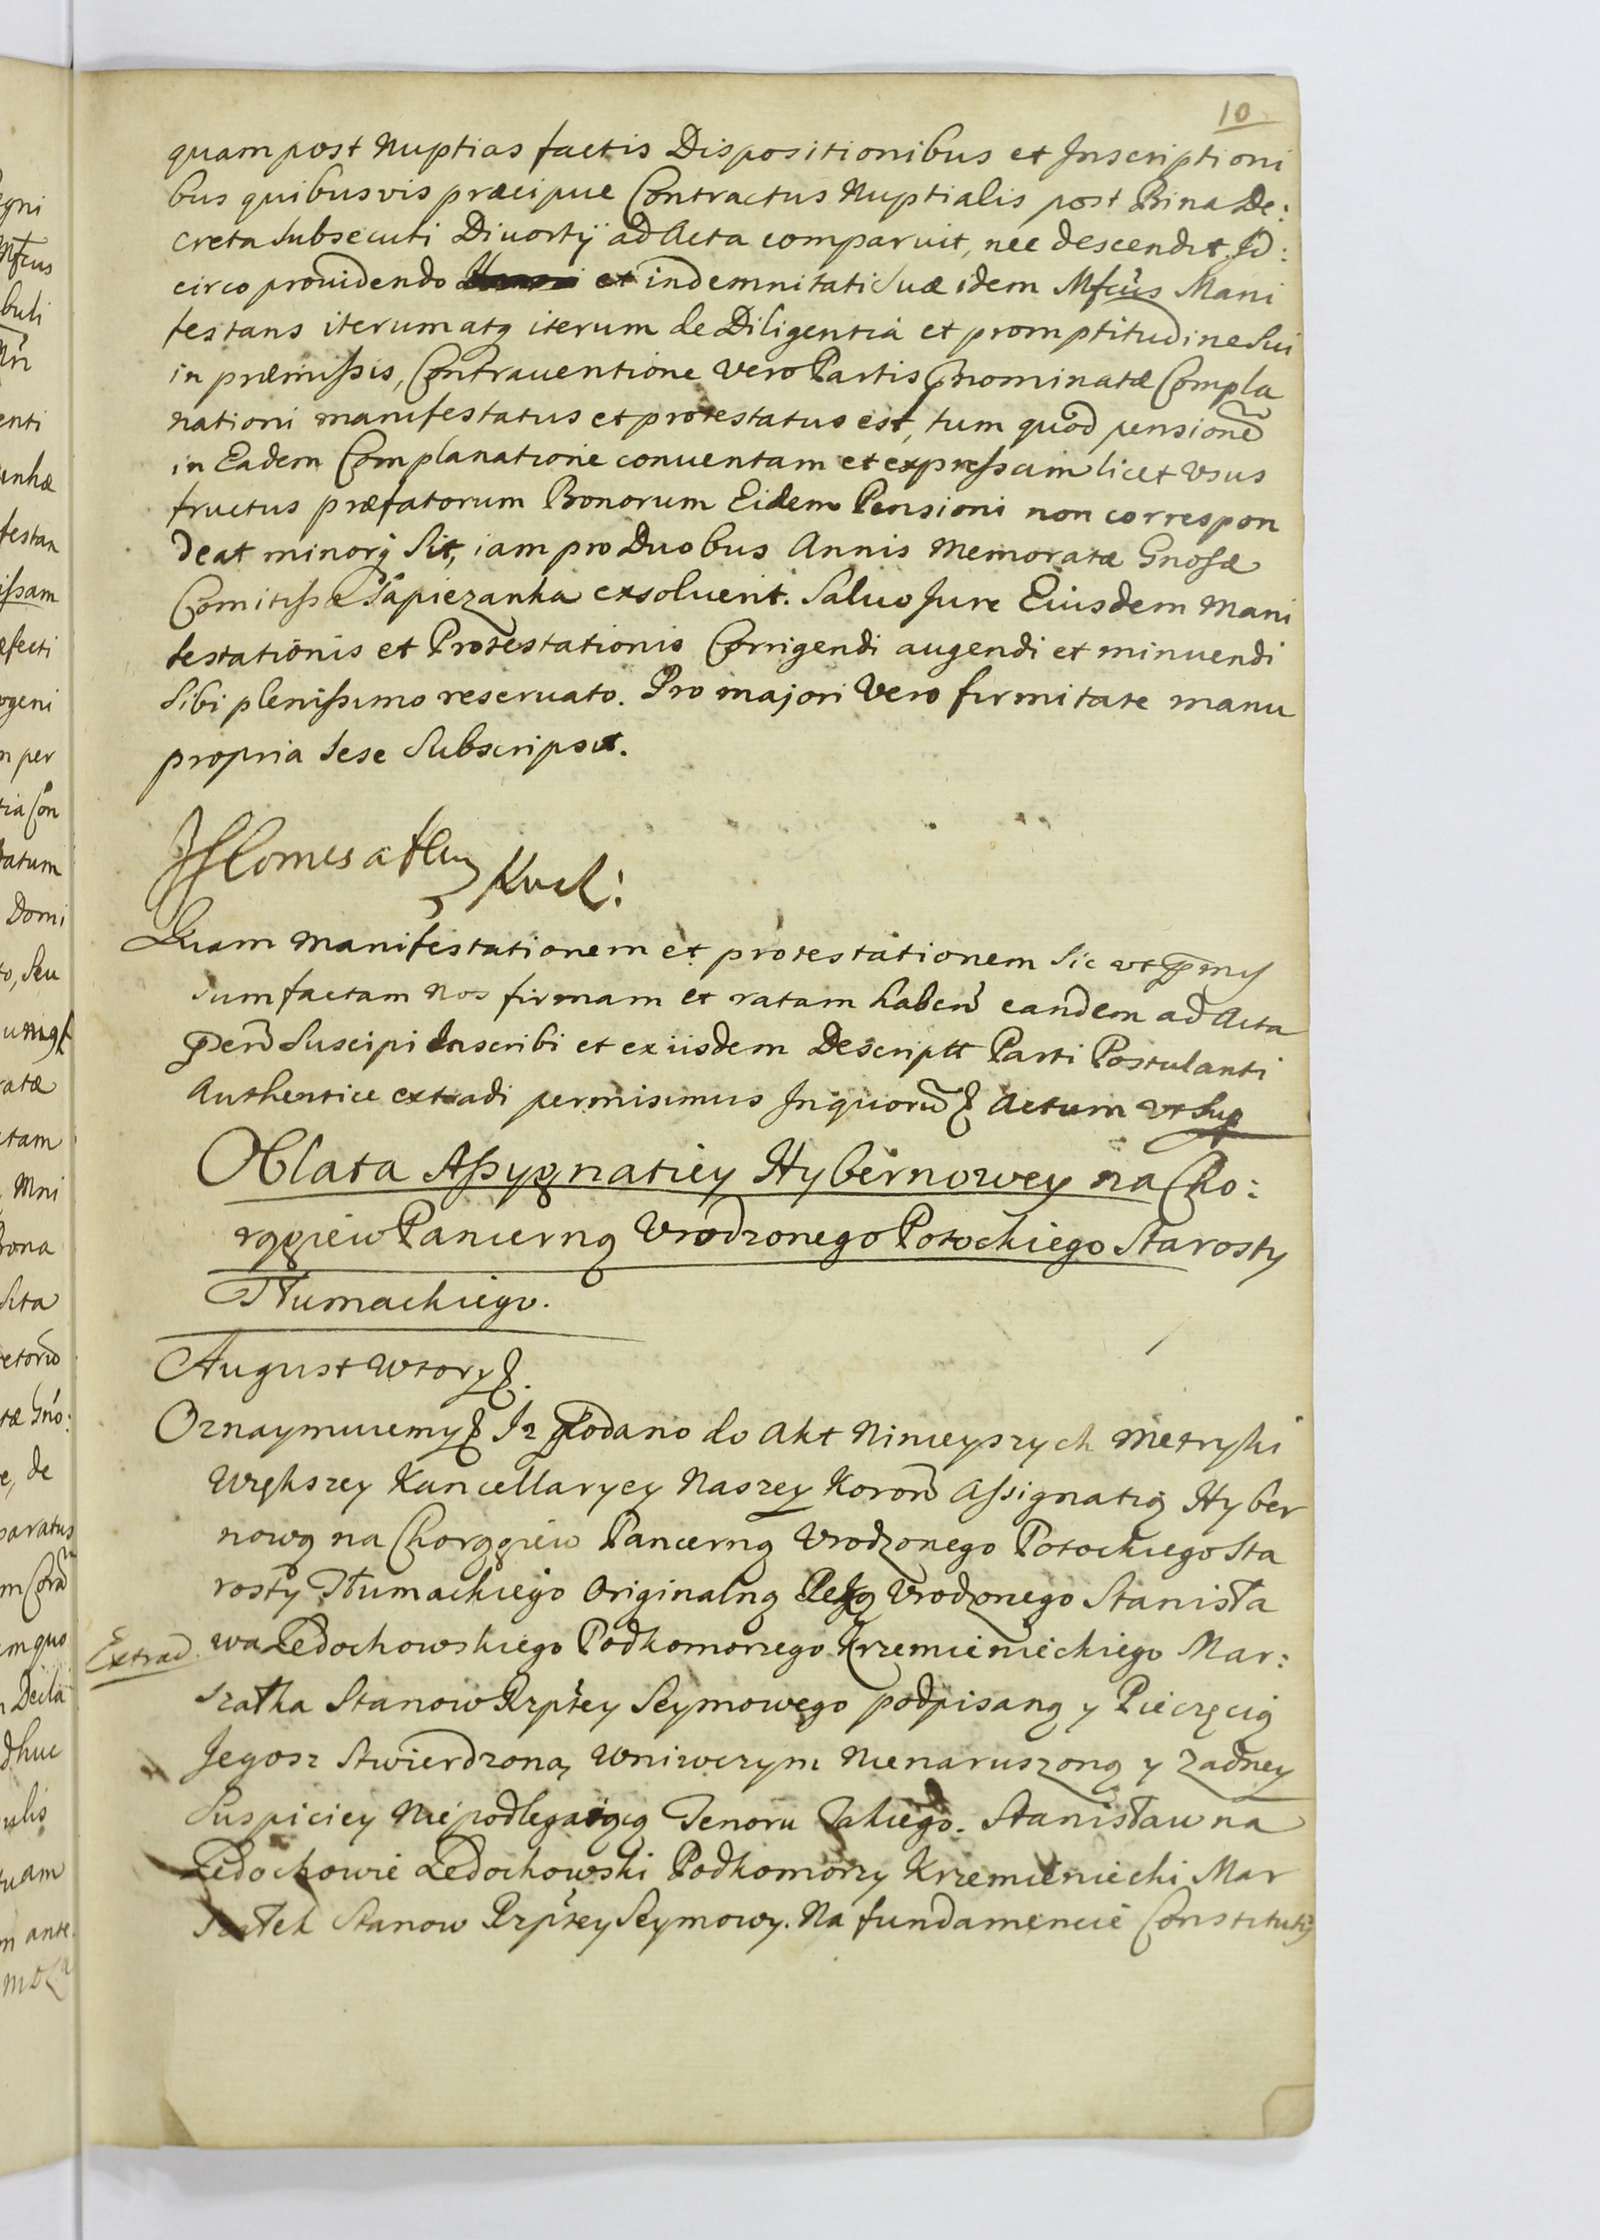 10
quam post Nuptias factis Dispositionibus et Inscriptioni
bus quibusvis præcipue Contractus Nuptialis post Bina De:
creta subsecuti Divortÿ ad Acta comparuit, nec descendit. Id:
circo providendo et indemnitati suæ idem Mfcus Mani
festans iterum atq iterum de Diligentia et promptitudine sui
in præmissis, Contraventione vero Partis nominatæ Compla
nationi manifestatus et protestatus est, tum quod pensionē
in Eadem Complanatione conventam et expressam licet Vsus
fructus præfatorum Bonorum Eidem Pensioni non correspon
deat minorq sit, iam pro Duobus Annis Memoratæ Gnosæ
Comitissæ Sapiezanka exsoluerit. Saluo Jure Eiusdem Mani
festationis et Protestationis Corrigendi augendi et minuendi
sibi plenissimo reseruato. Pro majori Vero firmitate manu
propria sese subscripsit.
Comes a
Quam Manifestationem et protestationem sic vt
sum factam Nos firmam et ratam haben eandem ad Acta
suscipi Inscribi et ex iisdem Descriptt Parti Postulanti
Authentice extradi permisimus Inquorū Actum vt sup
Oblata Assygnatiey Hybernowey na Cho:
rągiew Pancerną Vrodzonego Potockiego Starosty
Tłumackiego.
August Wtory
Oznaymuiemy Iz Podano do Akt Ninieyszych Metryki
Większey Kancellaryey Naszey Koron Assignatią Hyber
nową na Chorągiew Pancerną Vrodzonego Potockiego Sta
rosty Tłumackiego Originalną Ręką Vrodzonego Stanisła
Extrad. wa Ledochowskiego Podkomorzego Krzemienieckiego Mar:
szałka Stanow Rzptey Seymowego podpisaną y Pieczęcią
Jegosz Stwierdzoną, Wniwczym Nienaruszoną y Zadney
Suspiciey Niepodlegaiącą Tenoru Takiego. Stanisław na
Ledochowie Ledochowski Podkomorzy Krzemieniecki Mar
szałek Stanow Rzptey Seymowy. Na fundamencie Constituty